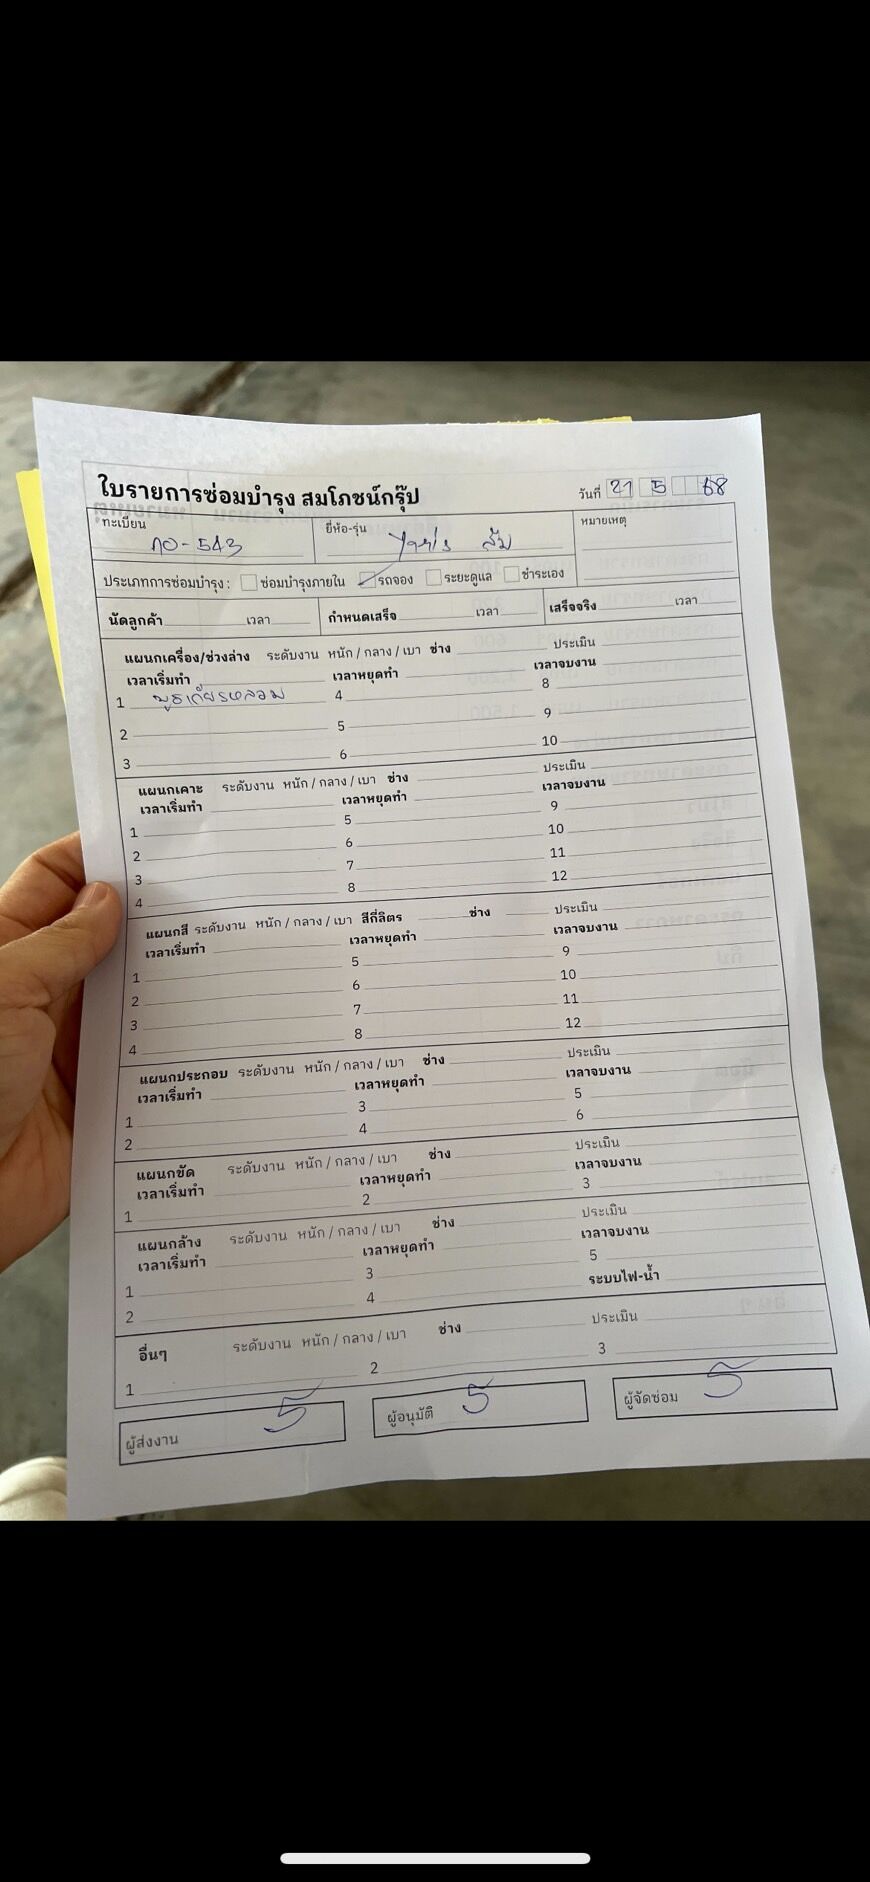 ใบรายการซ่อมบำรุง สมโภชน์กรุ๊ป
วันที่ 21 5 68
ทะเบียน ยี่ห้อ-รุ่น หมายเหตุ
กอ-543 ส้ม
ประเภทการซ่อมบำรุง : ซ่อมบำรุงภายใน รถจอง ระยะดูแล ชำระเอง
นัดลูกค้า เวลา กำหนดเสร็จ เวลา เสร็จจริง เวลา
แผนกเครื่อง/ช่วงล่าง ระดับงาน หนัก / กลาง / เบา ช่าง ประเมิน
เวลาเริ่มทำ เวลาหยุดทำ เวลาจบงาน
1 4 8
2 5 9
3 6 10
แผนกเคาะ ระดับงาน หนัก / กลาง / เบา ช่าง ประเมิน
เวลาเริ่มทำ เวลาหยุดทำ เวลาจบงาน
1 5 9
2 6 10
3 7 11
4 8 12
แผนกสี ระดับงาน หนัก / กลาง / เบา สีกี่ลิตร ช่าง ประเมิน
เวลาเริ่มทำ เวลาหยุดทำ เวลาจบงาน
1 5 9
2 6 10
3 7 11
4 8 12
แผนกประกอบ ระดับงาน หนัก / กลาง / เบา ช่าง ประเมิน
เวลาเริ่มทำ เวลาหยุดทำ เวลาจบงาน
1 3 5
2 4 6
แผนกขัด ระดับงาน หนัก / กลาง / เบา ช่าง ประเมิน
เวลาเริ่มทำ เวลาหยุดทำ เวลาจบงาน
1 2 3
แผนกล้าง ระดับงาน หนัก / กลาง / เบา ช่าง ประเมิน
เวลาเริ่มทำ เวลาหยุดทำ เวลาจบงาน
1 3 5
2 4 ระบบไฟ-น้ำ
อื่นๆ ระดับงาน หนัก / กลาง / เบา ช่าง ประเมิน
1 2 3
ผู้ส่งงาน ผู้อนุมัติ ผู้จัดซ่อม